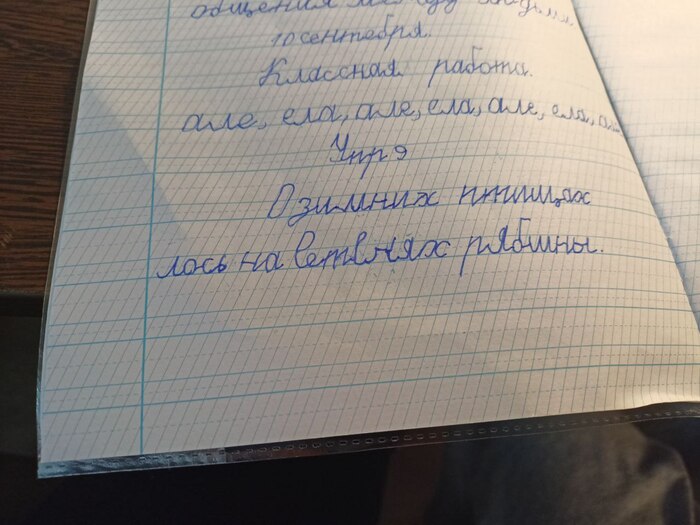 общения между людьми.
10 сентября.
Классная работа.
але, ела, але, ела, але, ела,
Упр 9
О зимних птицах
лось на ветвях рябины.